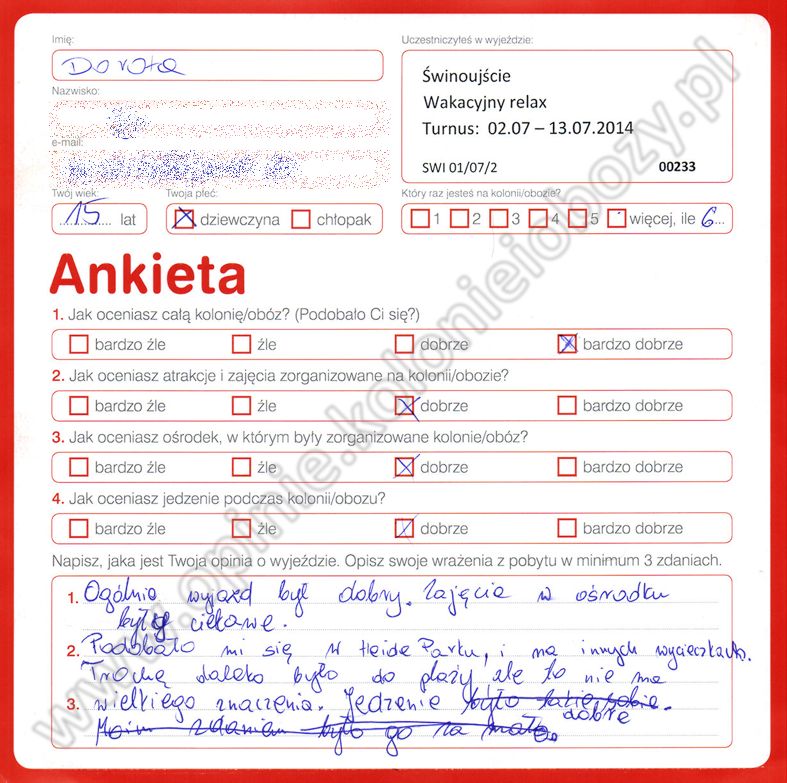 Imię:
Dorota
Uczestniczyłeś w wyjeździe:
Świnoujście
Wakacyjny relax
Turnus: 02.07 – 13.07.2014
SWI 01/07/2 00233
Nazwisko:
e-mail:
Twój wiek:
15 lat
Twoja płeć:
dziewczyna chłopak
Który raz jesteś na kolonii/obozie?
1 2 3 4 5 więcej, ile 6
Ankieta
1. Jak oceniasz całą kolonię/obóz? (Podobało Ci się?)
bardzo źle źle dobrze bardzo dobrze
2. Jak oceniasz atrakcje i zajęcia zorganizowane na kolonii/obozie?
bardzo źle źle dobrze bardzo dobrze
3. Jak oceniasz ośrodek, w którym były zorganizowane kolonie/obóz?
bardzo źle źle dobrze bardzo dobrze
4. Jak oceniasz jedzenie podczas kolonii/obozu?
bardzo źle źle dobrze bardzo dobrze
Napisz, jaka jest Twoja opinia o wyjeździe. Opisz swoje wrażenia z pobytu w minimum 3 zdaniach.
1. Ogólnie wyjazd był dobry. Zajęcia w ośrodku
były ciekawe.
2. Podobało mi się w Heide Parku, i na innych wycieczkach.
Trochę daleko było do plaży ale to nie ma
3. wielkiego znaczenia. Jedzenie było takie sobie.
dobre
Moim zdaniem było go za mało.
www.opinie.kolonieiobozy.pl